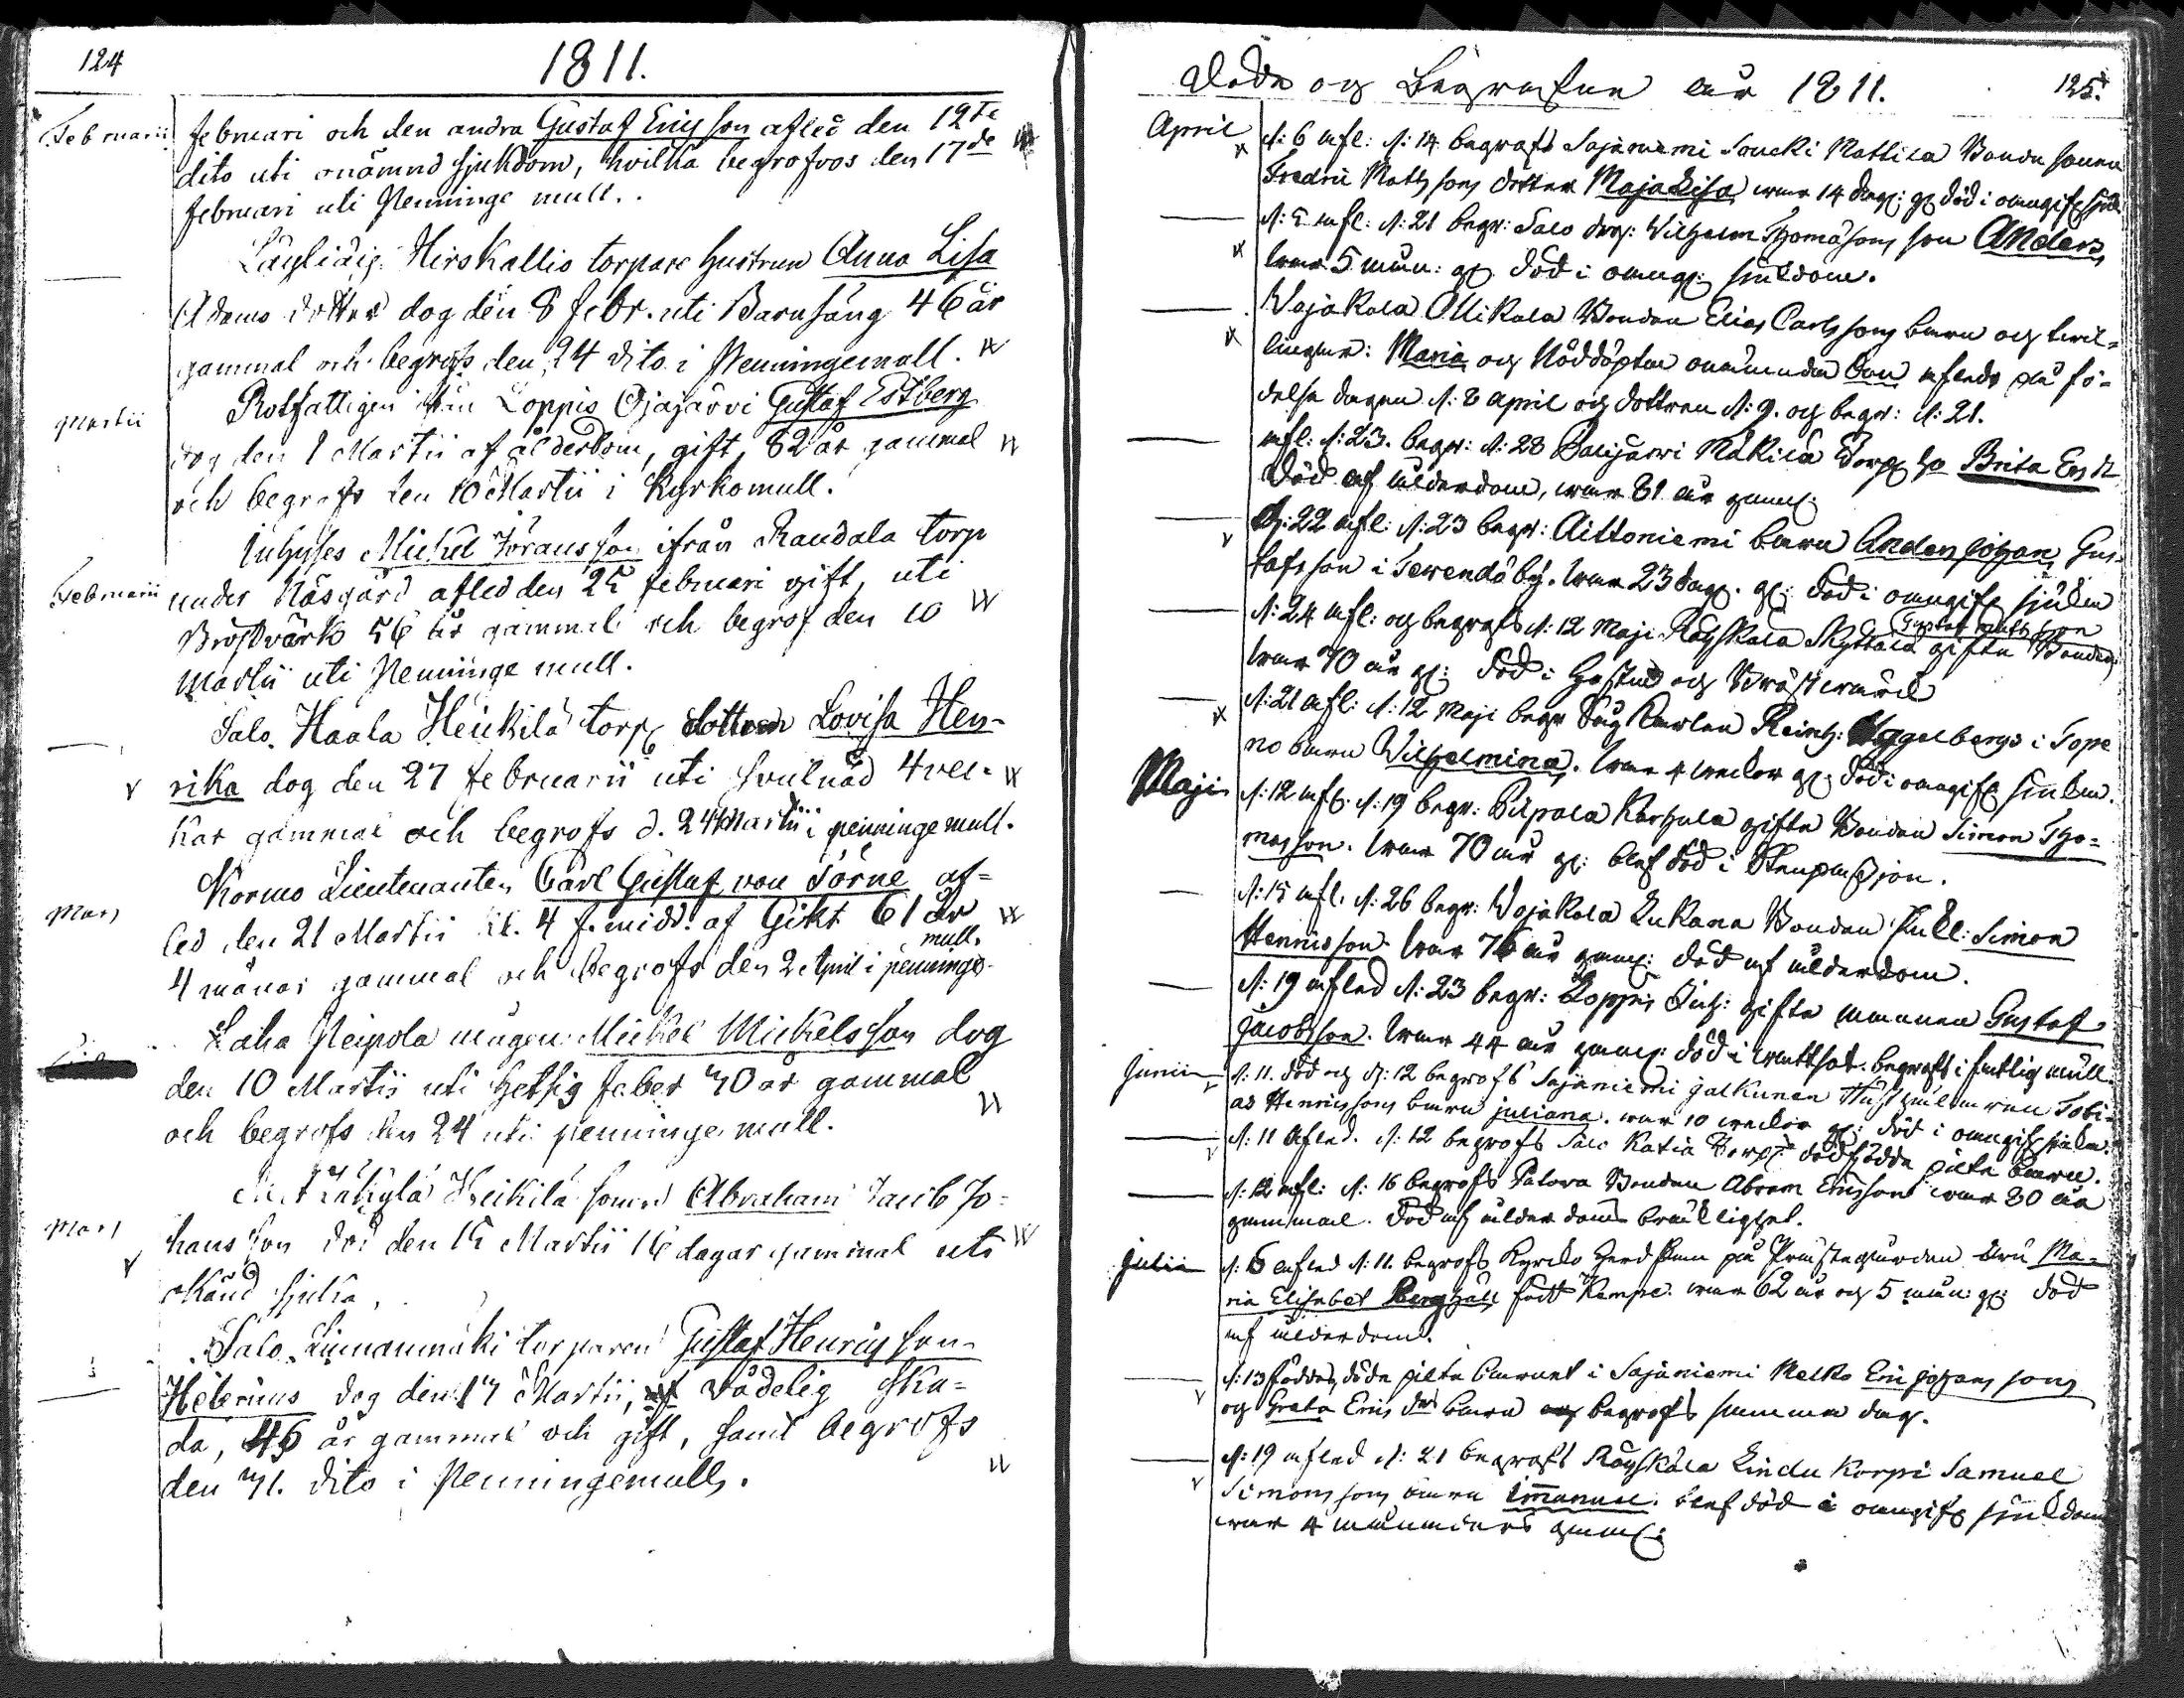 124
1811.
Februarii februari och den andra Gustaf Ericsson afled den 12te
dito uti onämnd sjukdom, hvilka begrofvos den 17de
februari uti Penninge mull.
Läyliäis. Hirskallio torpare hustrun Anna Lisa
Adams dotter dog den 8 febr. uti Barnsäng 46 år
gammal och begrofs den 24 dito i Penningemull.
Martii Rotfattigen ifrån Loppis Ojajärvi Gustaf Estberg
dog den 1 Martii af ålderdom, gift, 82 år gammal
och begrofs den 10 Martii i Kyrkomull.
Inhyses Mickel Göransson ifrån Randala torp
Februarii under Näsgård afled den 25 februari gift, uti
Bröstvärk 56 år gammal och begrof den 10
Martii uti Penninge mull.
Salo Haala Heikilä torp dottren Lovisa Hen-
rika dog den 27 februarii uti svulnad 4 vec-
kar gammal och begrofs d. 24 Martii i penninge mull.
Kormo Lieutenanten Carl Gustaf von Törne af=
Mars led den 21 Martii kl. 4 f. midd. af Gikt 61 år
mull.
4 månar gammal och begrofs den 2 April i penninge-
Laha Peipola mågen Mickel Mickelsson dog
den 10 Martii uti hetsig feber 40 år gammal
och begrofs den 24 uti penninge mull.
Heikilä sonen Abraham Jacob Jo-
Mars hansson död den 15 Martii 16 dagar gammal uti
okänd sjuka,
Salo Linnanmäki torparen Gustaf Henricsson
Helenius dog den 17 Martii, af vådelig ska=
da, 46 år gammal och gift, samt begrofs
den 31. dito i Penningemull.
Döde og Begrafne år 1811.
125.
April d: 6 afl: d: 14 begrafs Sajaniemi Soucki Mattila Bonde sonen
Fredric Matssons dotter Maja Lisa, war 14 dag: g: död i onugifs sjukd.
d: 5 afl: d: 21 begr: Salo drg: Wilhelm Thomassons son Anders,
war 5 mån: g: död i onug: sjukdom.
Wojakala Ollikala Bonden Elias Carlssons barn og twil-
lingar: Maria og Nöddöpta onämnda Son afledo på fö-
delse dagen d: 8 april og dottren d: 9. og begr: d: 21.
afl: d: 23. begr: d: 28 Salijärvi Mäkilä Torp: h: Brita Ers dr
död af ålderdom, war 81 år gam:
d: 22 afl: d: 23 begr: Aittoniemi barn Anders Johan Gus-
tafsson i Terwendö by. war 23 dag. g: död i onugifs sjukd
Gustaf Matsson
d: 24 afl: og begrafs d: 12 Maji Räyskälä Skyttälä gifte Bonden
war 70 år g: död i Hosta og Bröstwärk
d: 21 afl: d: 12 Maji begr Dag Karlen Reinh: Hagelbergs i Tope
no barn Wilhelmina, war 4 weckor g: död i onugifs sjukd.
Maji d: 12 afl: d: 19 begr: Pilpala Karhula gifte Bonden Simon Tho-
masson. war 70 år g: blef död i
d: 15 afl. d: 26 begr: Wojakala Lukana Bonden Enkl: Simon
Henricsson war 76 år gam: död af ålderdom.
d: 19 afled d: 23 begr: Loppis Inh: gifte mannen Gustaf
Jacobsson. war 44 år gam: död i wattsot. begrafs i fattig mull.
Junii d: 11. död og d: 12 begrofs Sajäniemi Jalkunen Husqvarnen Tobi-
as Henricssons barn Juliana. war 10 weckor g: död i onugifs sjukd.
d: 11 Afled. d: 12 begrofs Salo Katia Torp: dödfödde pilte barn.
d: 12 afl: d: 16 begrofs Patova Bonden Abram Ericsson war 80 år
gammal. död af ålderdoms bräcklighet.
Julii d: 6 afled d: 11. begrofs Kyrcko Herdskan på Prästegården Fru Ma-
ria Elisabet Berghäll född Kempe. war 62 år og 5 mån: g: död
af ålderdom.
d: 13 föddes döde pilte barnet i Sajaniemi Kelko Eric Johanssons
og Greta Erics drs barn og begrofs samma dag.
d: 19 afled d: 21 begrafs Räyskälä Lindu Korpi Samuel
Simonssons barn Immanuel. blef död i onugifs sjukdom
war 4 månaders gam: